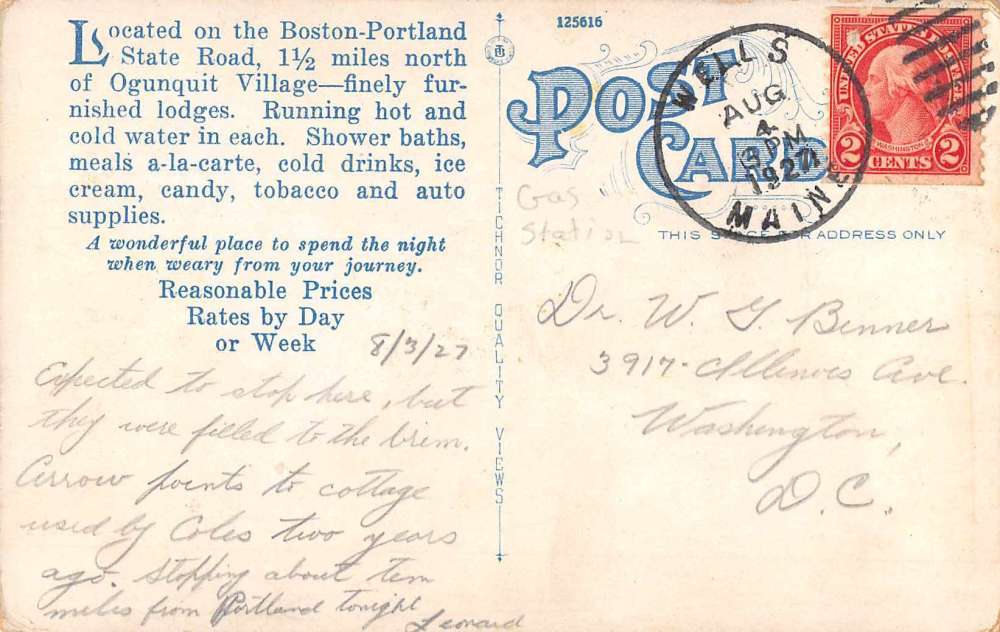 Located on the Boston-Portland
State Road, 1½ miles north
of Ogunquit Village—finely fur-
nished lodges. Running hot and
cold water in each. Shower baths,
meals a-la-carte, cold drinks, ice
cream, candy, tobacco and auto
supplies.
A wonderful place to spend the night
when weary from your journey.
Reasonable Prices
Rates by Day
or Week
8/3/27
Expected to stop here, but
they were filled to the brim.
Arrow points to cottage
used by Coles two years
ago. Stopping about ten
miles from Portland tonight
Leonard
TICHNOR QUALITY VIEWS
125616
POST CARD
Gas
Station
THIS SPACE FOR ADDRESS ONLY
WELLS
AUG
4
3 PM
1927
MAINE
UNITED STATES POSTAGE
WASHINGTON
2 CENTS 2
Dr. W. G. Benner
3917- Illinois Ave.
Washington,
D.C.